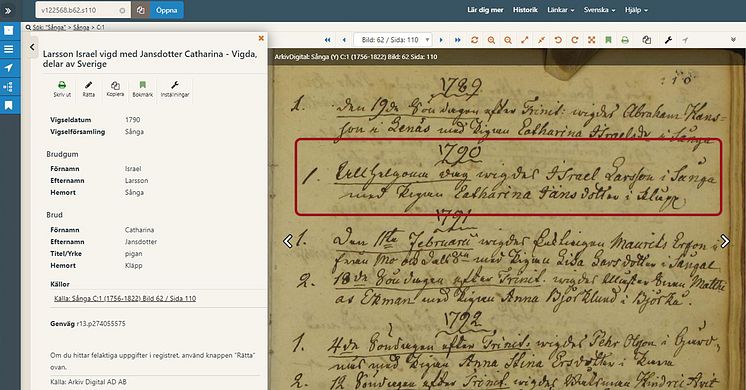 v122568.b62.s110
Öppna
Lär dig mer Historik Länkar Svenska Hjälp
Sök: "Sånga" > Sånga > C:1
Bild: 62 / Sida: 110
ArkivDigital: Sånga (Y) C:1 (1756-1822) Bild: 62 Sida: 110
Larsson Israel vigd med Jansdotter Catharina - Vigda,
delar av Sverige
Skriv ut Rätta Kopiera Bokmärk Inställningar
Vigseldatum 1790
Vigselförsamling Sånga
Brudgum
Förnamn Israel
Efternamn Larsson
Hemort Sånga
Brud
Förnamn Catharina
Efternamn Jansdotter
Titel/Yrke pigan
Hemort Kläpp
Källor
Källa: Sånga C:1 (1756-1822) Bild 62 / Sida 110
Genväg r13.p274055575
Om du hittar felaktiga uppgifter i registret, använd knappen "Rätta"
ovan.
Källa: Arkiv Digital AD AB
1789
1. den 19de Söndagen efter Trinit: wigdes Abraham Hans-
son i med Pigan Catharina Israelsd: i Sånga
1790
1. Allhelgona dag wigdes Israel Larsson i Sånga
med Pigan Catharina Jansdotter i Kläpp.
1791
1. Den 11te Februarii wigdes Mauritz
med Pigan Lisa Larsdotter i Sånga
2. 13de Söndagen efter Trinit. wigdes Matthi
as Ekman med Pigan Anna Björklund i Björkå.
1792
1. 4de Söndagen efter Trinit: wigdes Pehr Olsson i
med Pigan Anna Stina Ersdotter i
2. Söndagen efter Trinit: wigdes